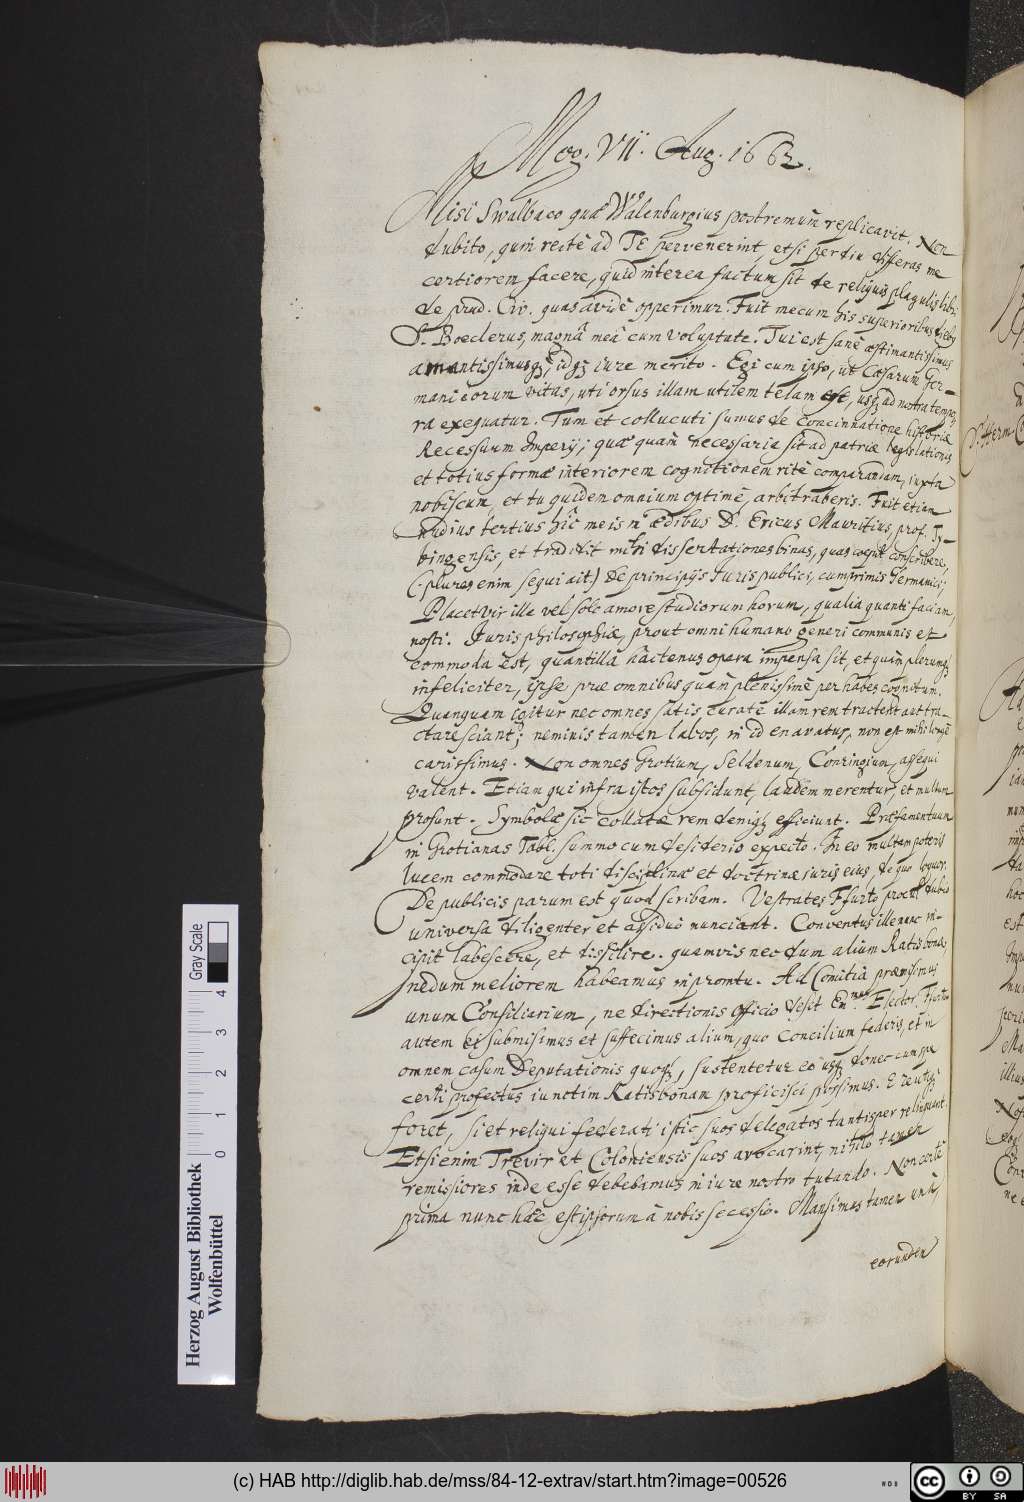 Mog. VII. Aug. 1662.
Misi Swalbaco quæ Walenburgius postremùm replicavit. Non
dubito, quin rectè ad TE pervenerint, etsi perdiu differas me
certiorem facere, quid interea factum sit de reliquis plagulis libri
de prud. Civ. quas avidè opperimur. Fuit mecum his superioribus diebus
D. Boeclerus, magnâ meâ cum voluptate. Tui est sanè æstimantissimus
amantissimusq́;, idq́; iure merito. Egi cum ipso, ut Cæsarum Ger-
manicorum vitas, uti orsus illam utilem telam est, usq́; ad nostra tempo-
ra exequatur. Tum et collucuti sumus de concinnatione historiæ
Recessuum Imperij; quæ quàm necessaria sit ad patriæ legislationis
et totius formæ interiorem cognitionem ritè comparandam, iuxta
nobiscum, et tu quidem omnium optimè, arbitraberis. Fuit etiam
nudius tertius hîc meis in ædibus D. Ericus Mauritius, prof. Ty-
bingensis, et tradidit mihi dissertationes binas, quas coepit conscribere,
(plures enim sequi ait) de principijs Iuris publici, cumprimis Germanici;
Placet vir ille vel solo amore studiorum horum, qualia quanti faciam,
nosti. Iuris philosophiæ, prout omni humano generi communis et
commoda est, quantilla hactenus opera impensa sit, et quàm plerunq́;
infeliciter, ipse præ omnibus quàm plenissimè perhabes cognitum.
Quanquam igitur nec omnes satis curatè illam rem tractent aut tra-
ctare sciant; neminis tamen labos, in id enavatus, non est mihi longè
carissimus. Non omnes Grotium, Seldenum, Conringium, assequi
valent. Etiam qui infra istos subsidunt, laudem merentur, et multum
prosunt. Symbolæ sic collatæ rem deniq́; efficiunt. Præfamentuum
in Grotianas Tabl. summo cum desiderio expecto. In eo multam poteris
lucem commodare toti disciplinæ et doctrinæ iuris eius, de quo loquor.
De publicis parum est quod scribam. Vestrates Ffurto procul dubio
universa diligenter et assiduò nunciant. Conventus ille nunc in-
cipit labescere, et dissilire. quamvis nec dum alium Ratisbonæ,
nedum meliorem habeamus in promtu. Ad Comitia præmisimus
unum Consiliarium, ne directionis officio desit Emus Elector. Ffurto
autem ei submisimus et suffecimus alium, quo Concilium federis, et in
omnem casum Deputationis quoq́;, sustentetur eò usq́; donec cum spe
certi profectus iunctim Ratisbonam proficisci possimus. E re utiq́;
foret, si et reliqui federati istic suos delegatos tantisper relinquant.
Etsi enim Trevir et Coloniensis suos avocarint, nihilo tamen
remissiores inde esse debebamus in iure nostro tutando. Non certè
prima nunc hæc est ipsorum à nobis secessio. Mansimus tamen unà,
eorundem
D. Herm
Herzog August Bibliothek
Wolfenbüttel
Gray Scale
0 1 2 3 4
(c) HAB http://diglib.hab.de/mss/84-12-extrav/start.htm?image=00526
cc BY SA